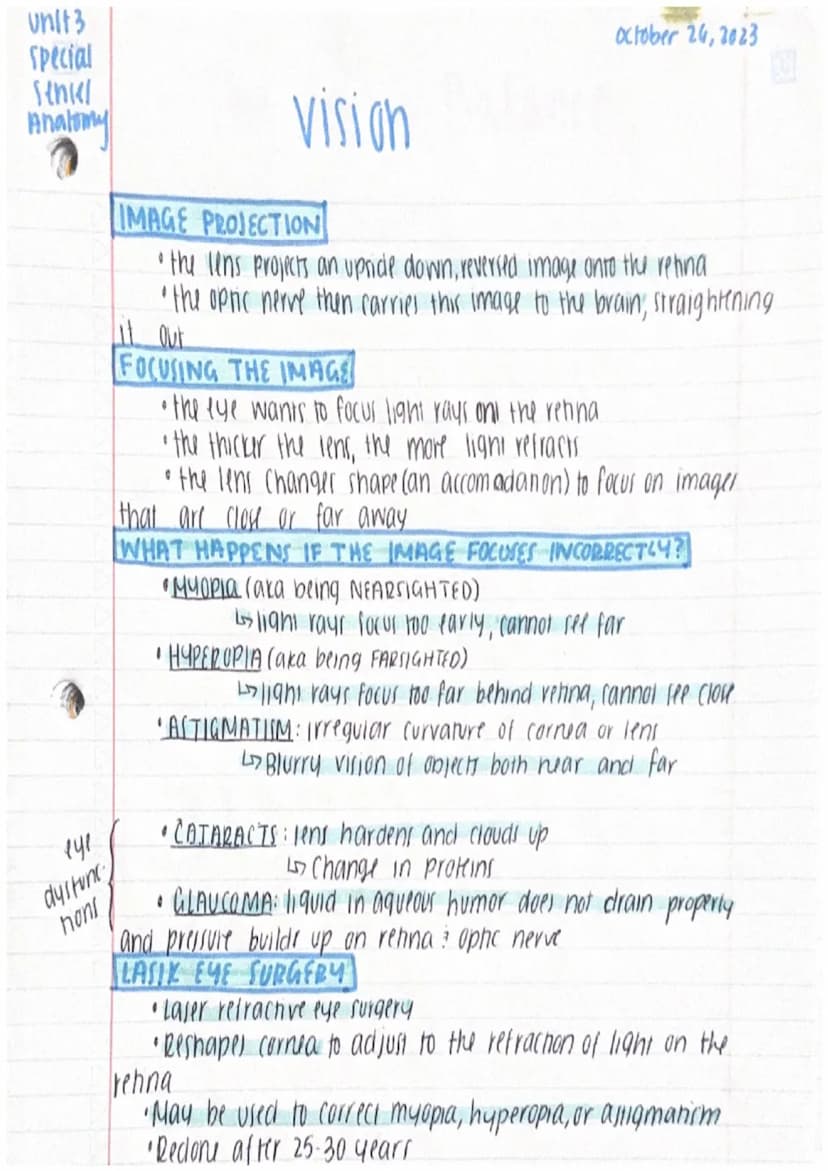 unit 3
special
senses
Anatomy
October 26, 2023
vision
IMAGE PROJECTION
• the lens projects an upside down, reversed image onto the retina
• the optic nerve then carries this image to the brain; straightening
it out
FOCUSING THE IMAGE
• the eye wants to focus light rays onto the retina
• the thicker the lens, the more light refracts
• the lens changes shape (an accomadation) to focus on images
that are close or far away
WHAT HAPPENS IF THE IMAGE FOCUSES INCORRECTLY?
• MYOPIA (aka being NEARSIGHTED)
↳ light rays focus too early, cannot see far
• HYPEROPIA (aka being FARSIGHTED)
↳ light rays focus too far behind retina, cannot see close
• ASTIGMATISM: irregular curvature of cornea or lens
↳ Blurry vision of objects both near and far
eye
dysfunc-
tions
• CATARACTS: lens hardens and clouds up
↳ Change in proteins
• GLAUCOMA: liquid in aqueous humor does not drain properly
and pressure builds up on retina & optic nerve
LASIK EYE SURGERY
• Laser refractive eye surgery
• Reshapes cornea to adjust to the refraction of light on the
retina
• May be used to correct myopia, hyperopia, or astigmatism
• Redone after 25-30 years